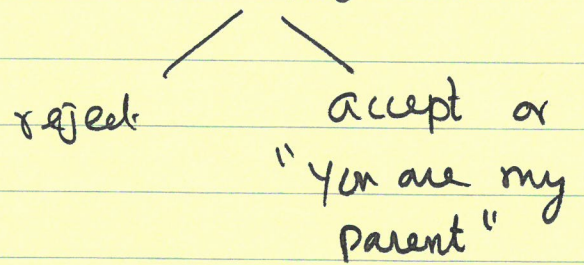 reject accept or
"you are my
parent"